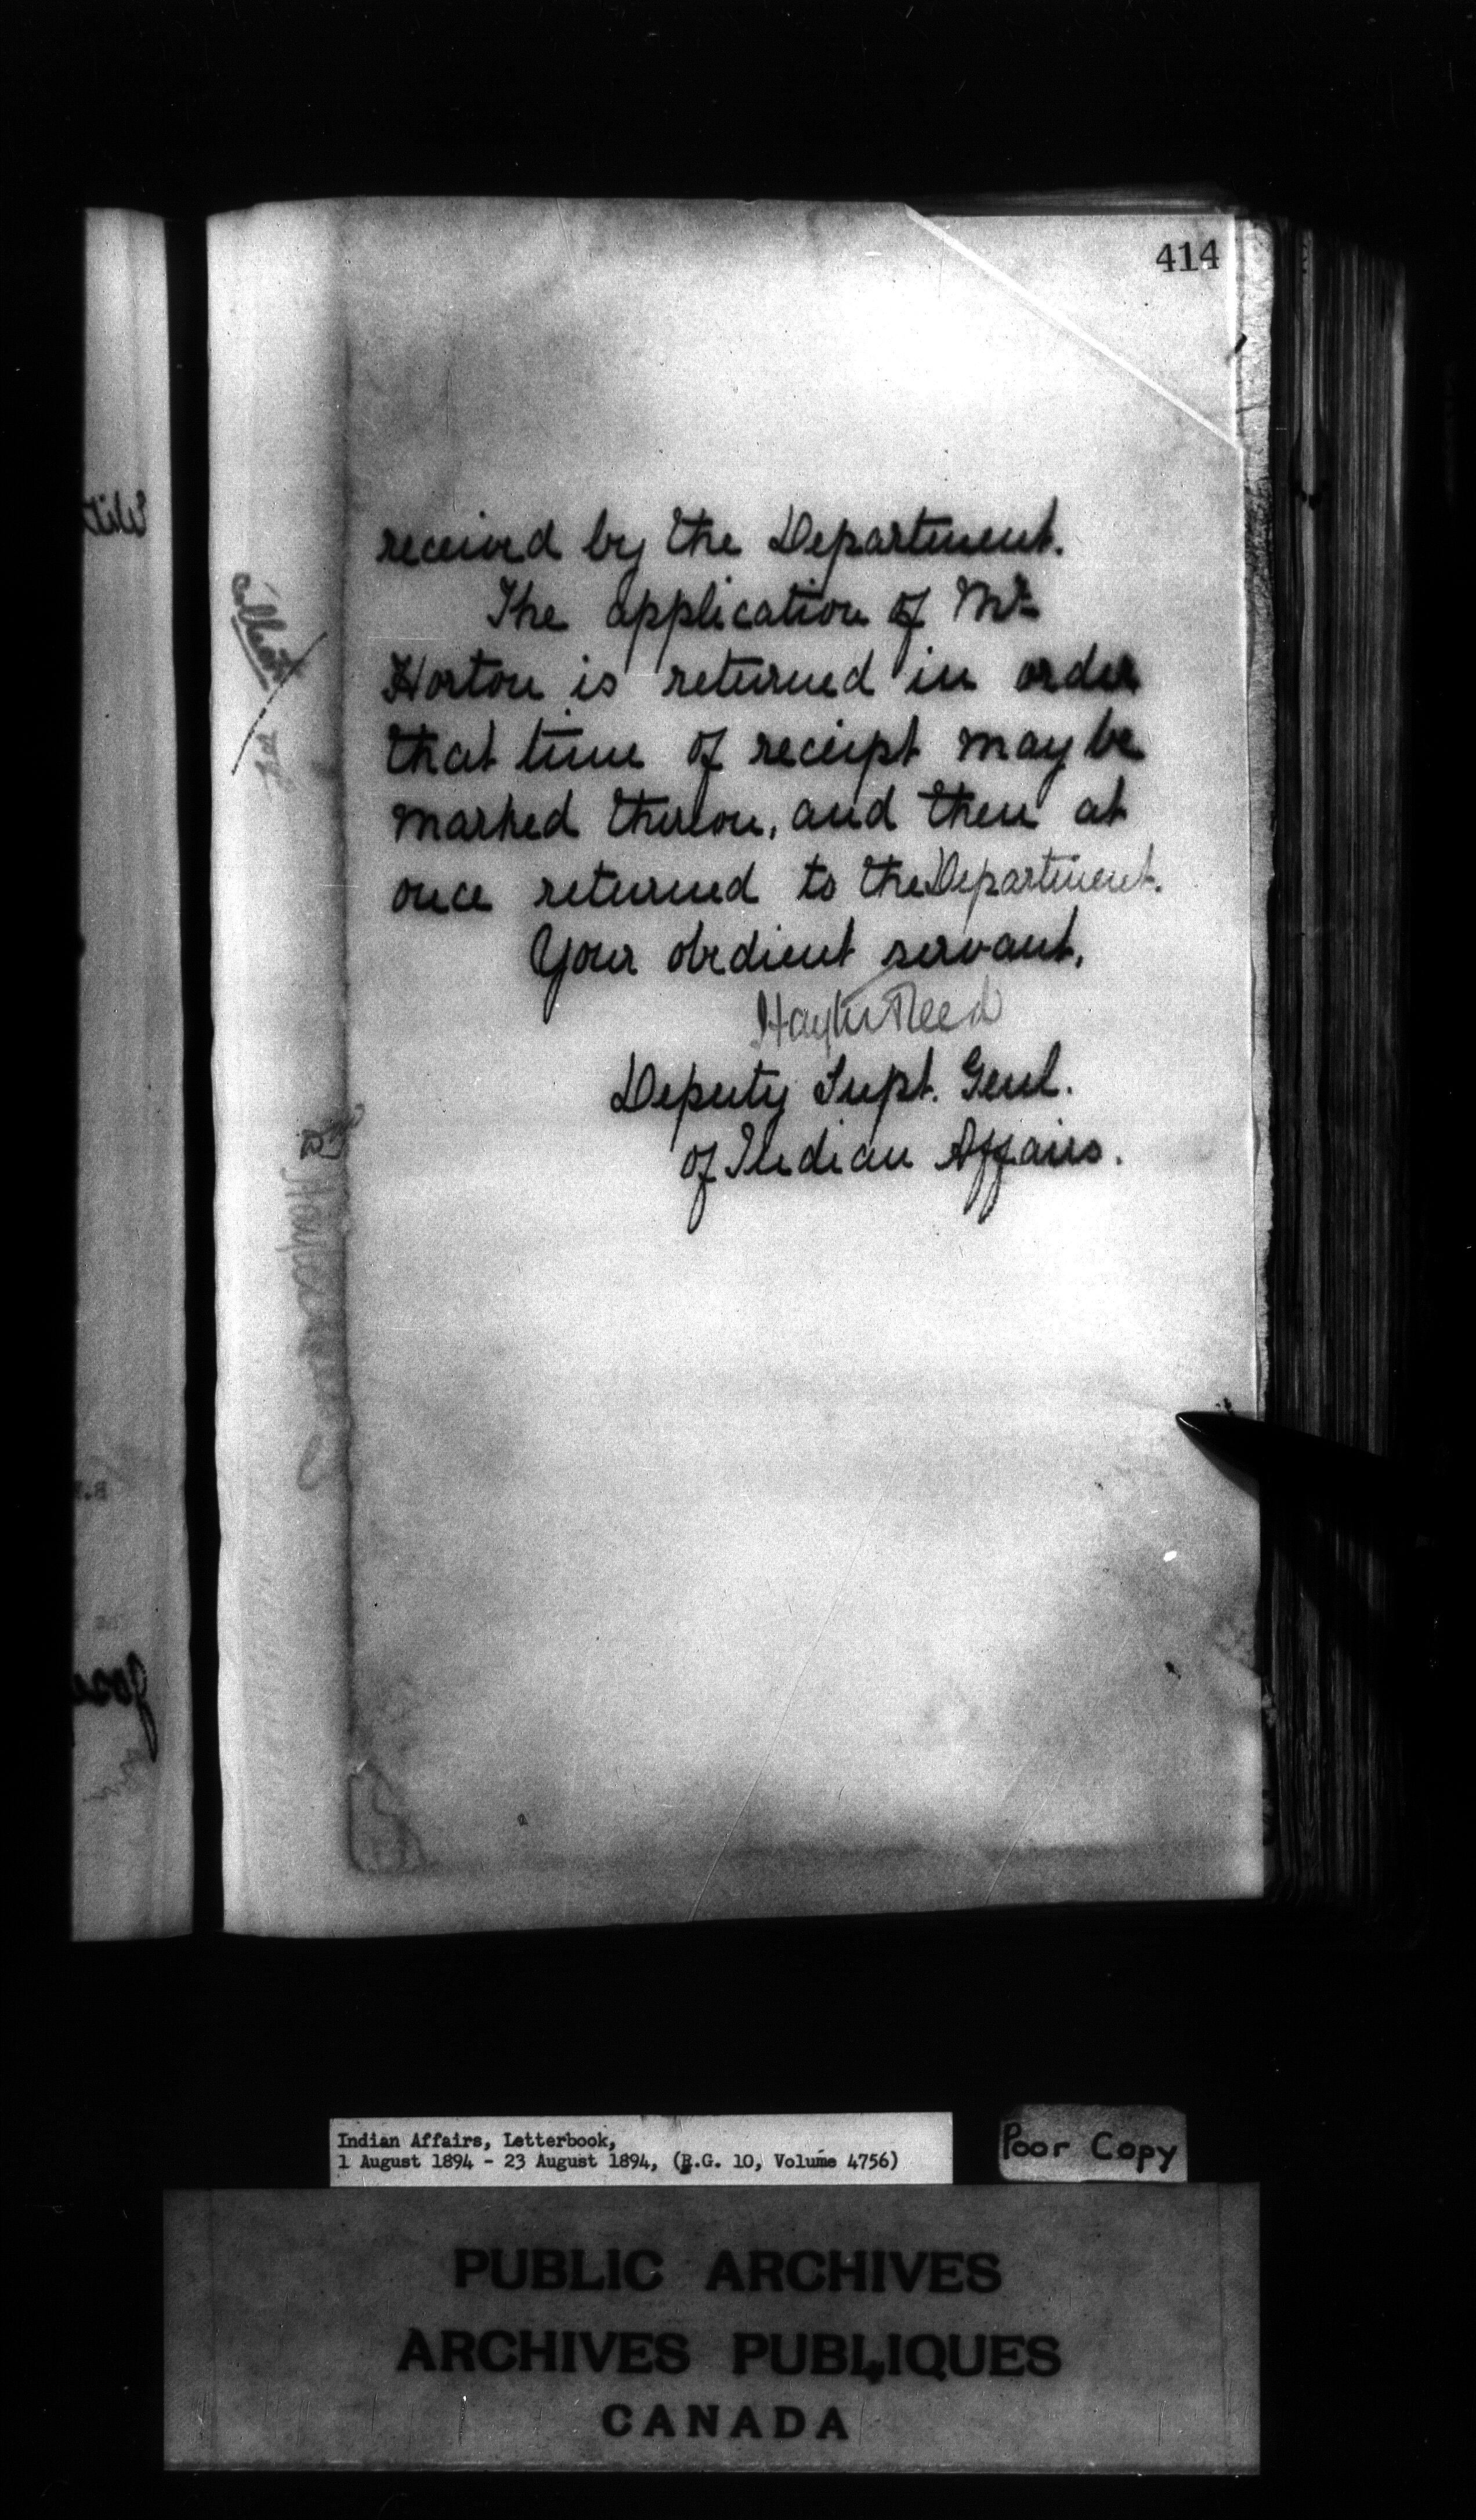 414
received by the Department.
The application of Mr
Horton is returned in order
that time of receipt may be
marked thereon, and then at
once returned to the Department.
Your obedient servant,
Hayter Reed
Deputy Supt. Genl.
of Indian Affairs.
Indian Affairs, Letterbook,
1 August 1894 - 23 August 1894, (R.G. 10, Volume 4756)
Poor Copy
PUBLIC ARCHIVES
ARCHIVES PUBLIQUES
CANADA